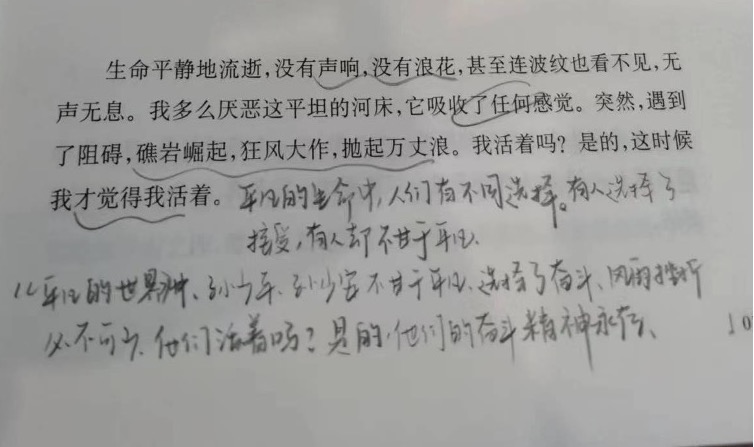 生命平静地流逝，没有声响，没有浪花，甚至连波纹也看不见，无
声无息。我多么厌恶这平坦的河床，它吸收了任何感觉。突然，遇到
了阻碍，礁岩崛起，狂风大作，抛起万丈浪。我活着吗？是的，这时候
我才觉得我活着。平凡的生命中，人们有不同选择。有人选择了
接受，有人却不甘于平凡。
平凡的世界中、孙少平、孙少安不甘于平凡、选择了奋斗、风雨挫折
必不可少、他们活着吗？是的，他们的奋斗精神永存、